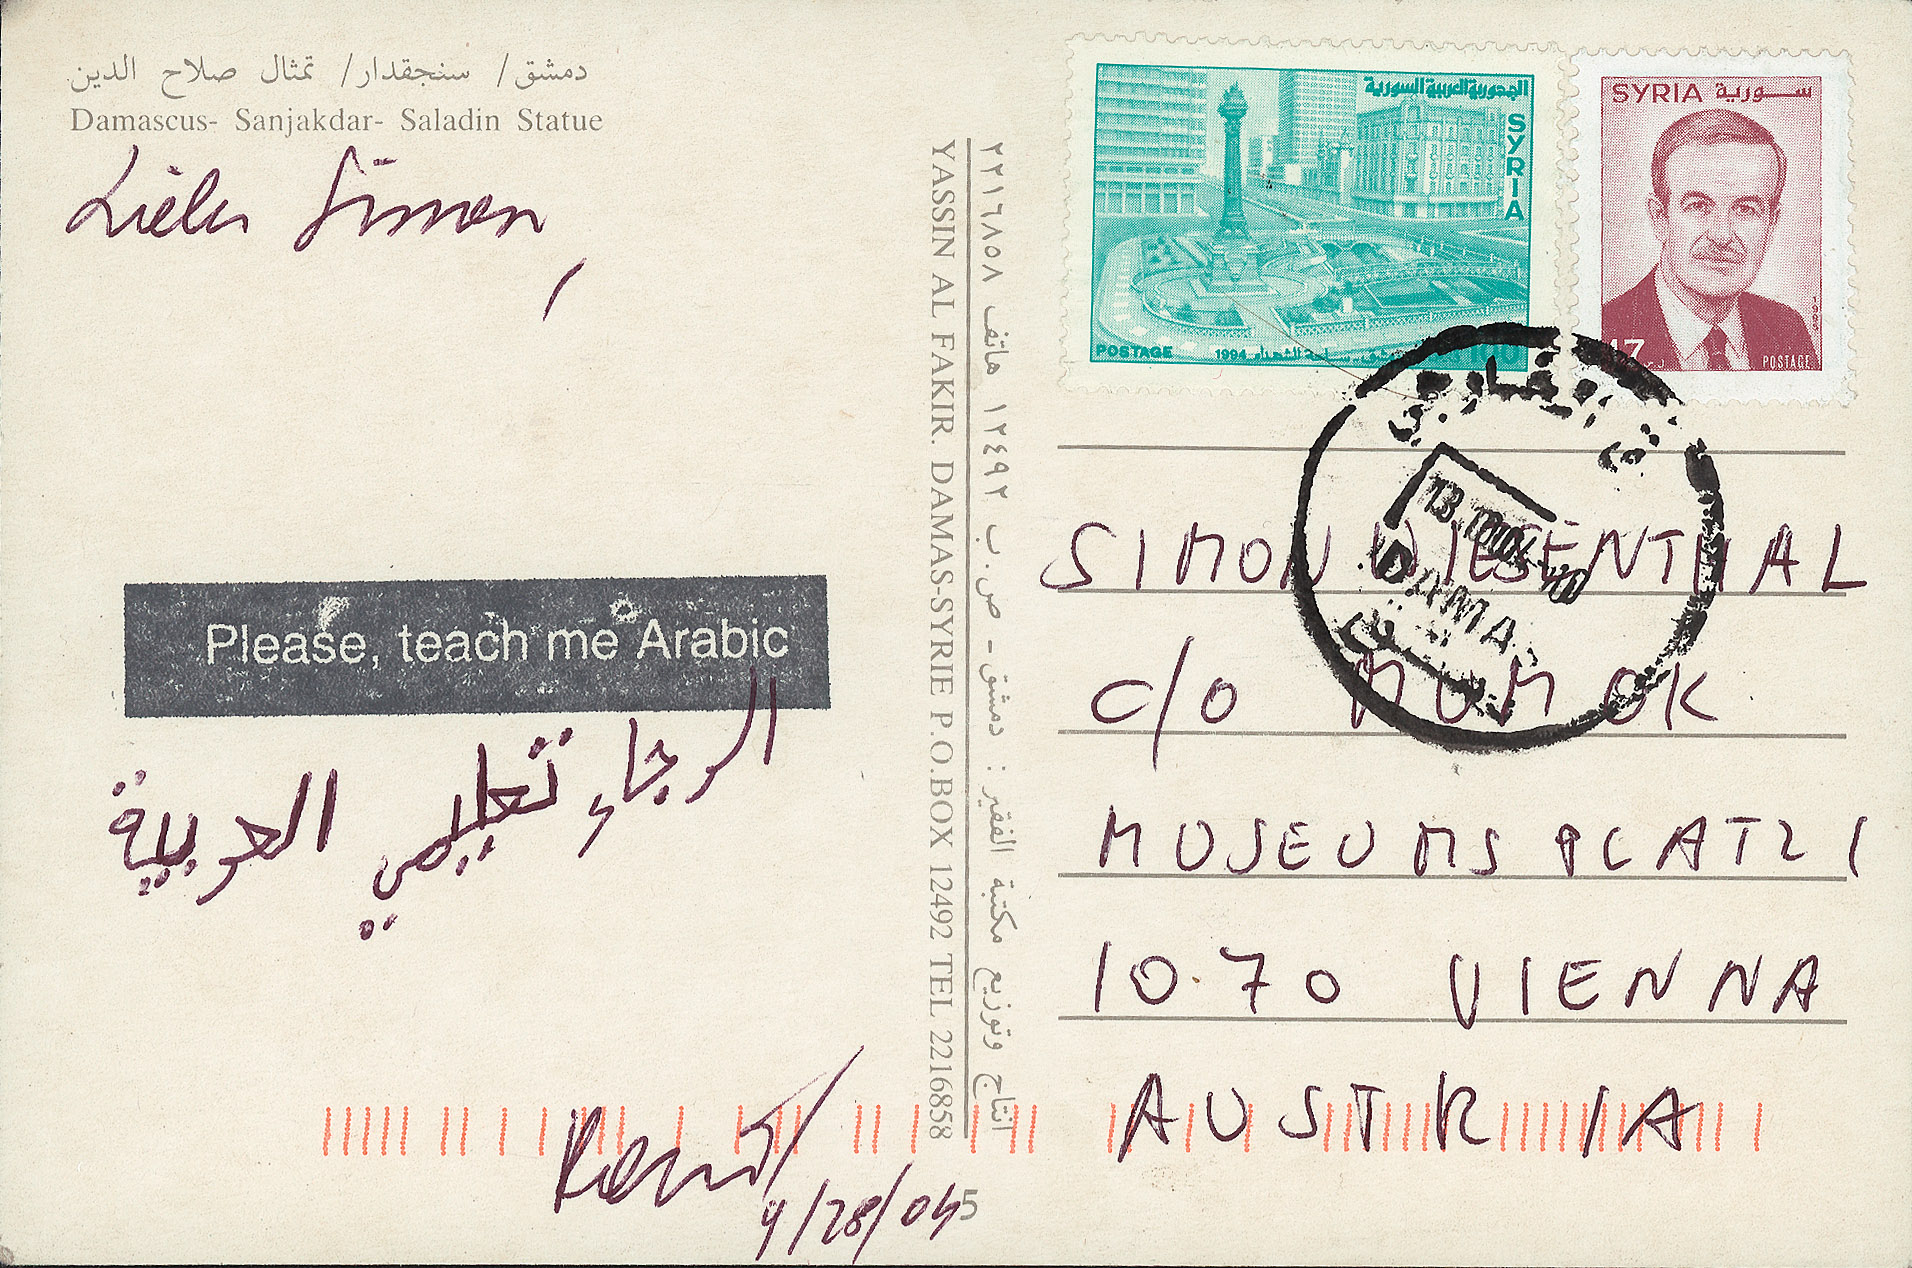 دمشق/ سنجقدار/ تمثال صلاح الدين
Damascus- Sanjakdar- Saladin Statue
Lieber Simon,
Please, teach me Arabic
الرجاء تعليمي العربية
9/28/04
5
انتاج وتوزيع مكتبة الفقير : دمشق - ص.ب ١٢٤٩٢ هاتف ٢٢١٦٨٥٨
YASSIN AL FAKIR. DAMAS-SYRIE P.O.BOX 12492 TEL 2216858
الجمهورية العربية السورية
SYRIA
POSTAGE
1994
ساحة الشهداء
SYRIA سورية
17
POSTAGE
DAMAS
SIMON WIESENTHAL
c/o MUMOK
MUSEUMSPLATZ 1
10.70 VIENNA
AUSTRIA